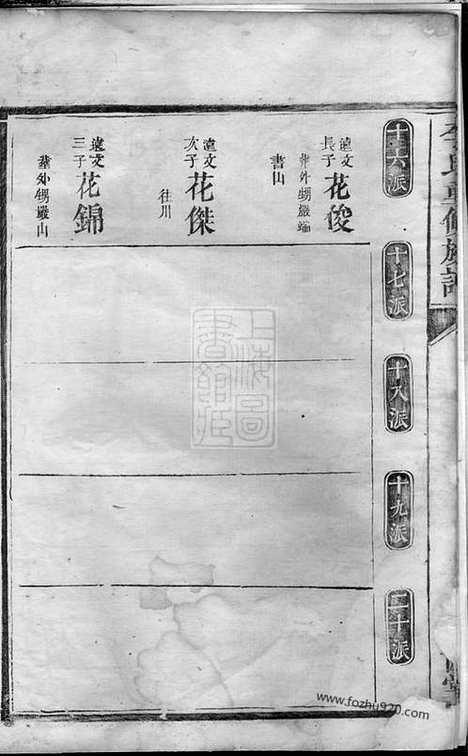 李氏重修族譜
十六派
十七派
十八派
十九派
二十派
遠文
長子
花俊
葬外甥嚴
書山
遠文
次子
花傑
往川
遠文
三子
花錦
葬外甥嚴山
上海圖
書館藏
www.fozhu920.com